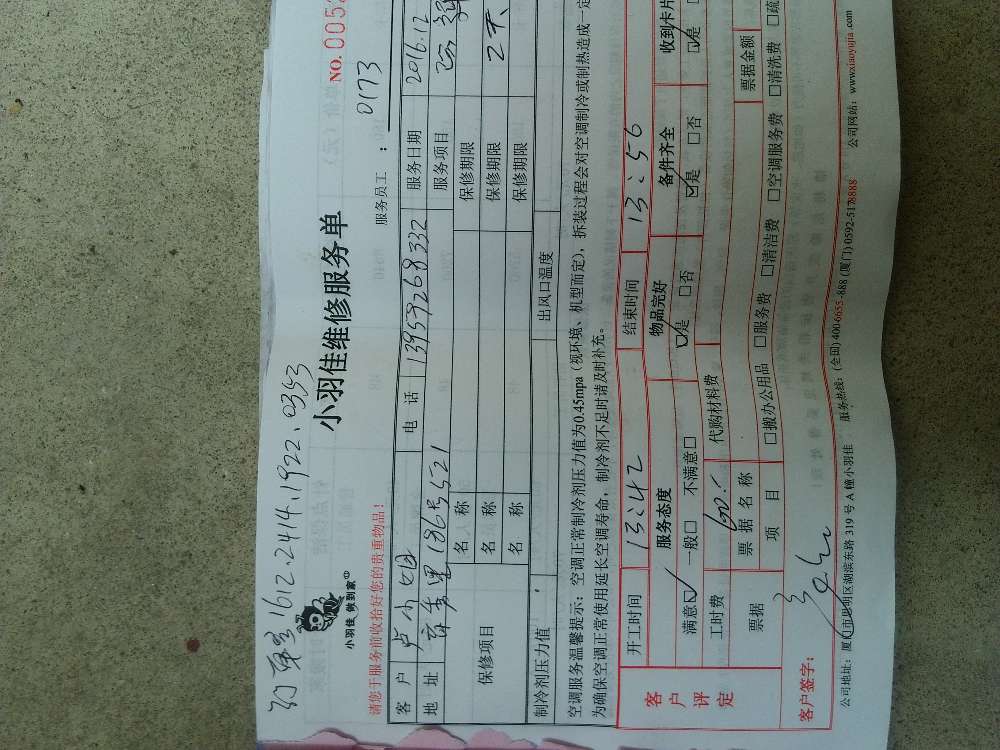 1612.2414.1922.0353
小羽佳 做到家
小羽佳维修服务单
NO. 005
请您于服务前收拾好您的贵重物品!
服务员工 : 0173
客 户 卢小姐 电 话 13959268332 服务日期 2016.12
地 址 186号521 服务项目
保修项目 名 称 保修期限 2天
名 称 保修期限
名 称 保修期限
制冷剂压力值 出风口温度
空调服务温馨提示:空调正常制冷剂压力值为0.45mpa(视环境、机型而定),拆装过程会对空调制冷或制热造成一定
为确保空调正常使用延长空调寿命,制冷剂不足时请及时补充。
客户评定
开工时间 13:42 结束时间 13:56
服务态度 物品完好 备件齐全 收到卡片
满意☑ 一般□ 不满意□ ☑是 □否 ☑是 □否 ☑是
工时费 代购材料费
票据 票 据 名 称 票据金额
项 目 □搬办公用品 □服务费 □清洁费 □空调服务费 □清洗费 □疏
客户签字:
公司地址:厦门市思明区湖滨东路 319 号 A 幢小羽佳 服务热线:(全国) 400-6655-888 (厦门) 0592-5178888 公司网站:www.xiaoyujia.com